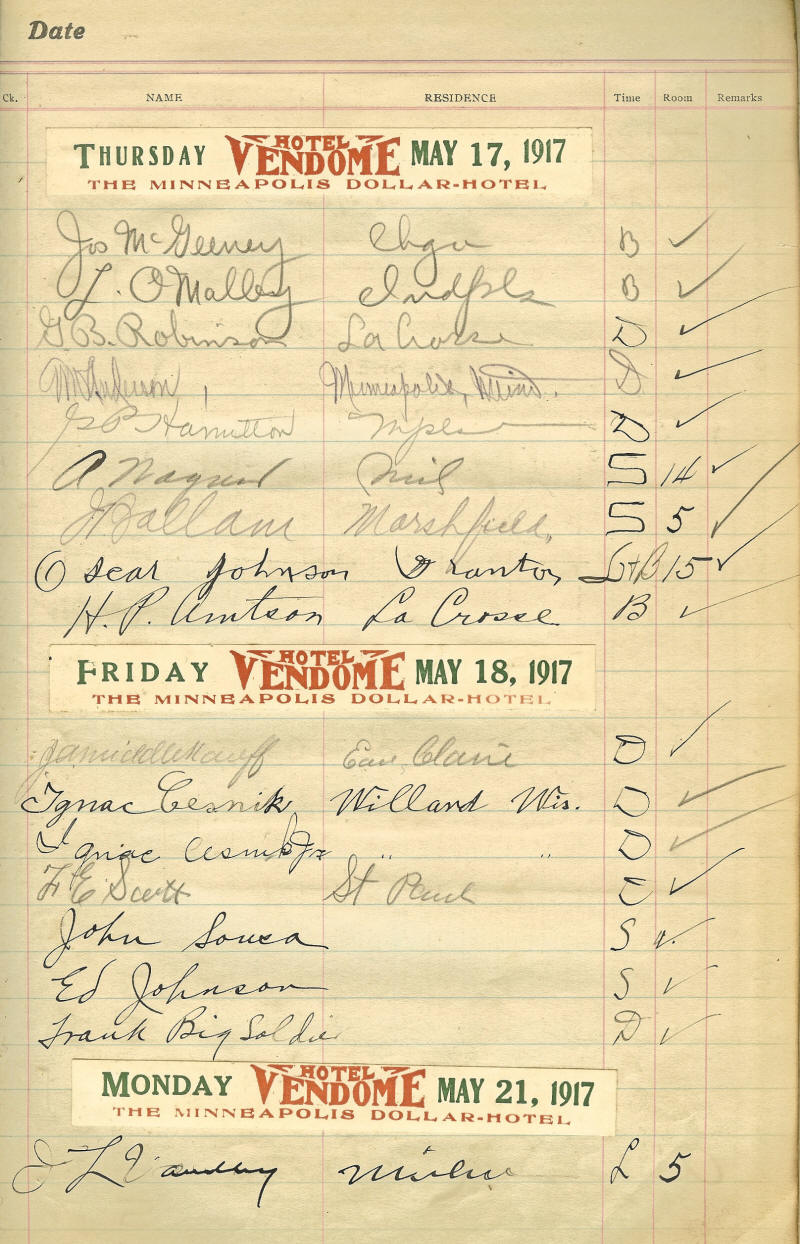 Date
Ck. NAME RESIDENCE Time Room Remarks
THURSDAY HOTEL VENDOME MAY 17, 1917
THE MINNEAPOLIS DOLLAR-HOTEL
Jos McGeeney Chgo B
L. O'Malley Indpls B
G.B. Robinson La Crosse D
Anderson, Minneapolis, Minn. D
Hamilton Mpls D
A Wagner Mil S 14
J Ballam Marshfield, S 5
Oscar Johnson L+B 15
H. P. Amtson La Crosse B
FRIDAY HOTEL VENDOME MAY 18, 1917
THE MINNEAPOLIS DOLLAR-HOTEL
Eau Claire D
Ignac Cesnik Willard Wis. D
Ignac Cesnik Jr " " D
F E Scott St Paul D
John Sousa S
Ed Johnson S
Frank Big Soldier D
MONDAY HOTEL VENDOME MAY 21, 1917
THE MINNEAPOLIS DOLLAR-HOTEL
J L L 5